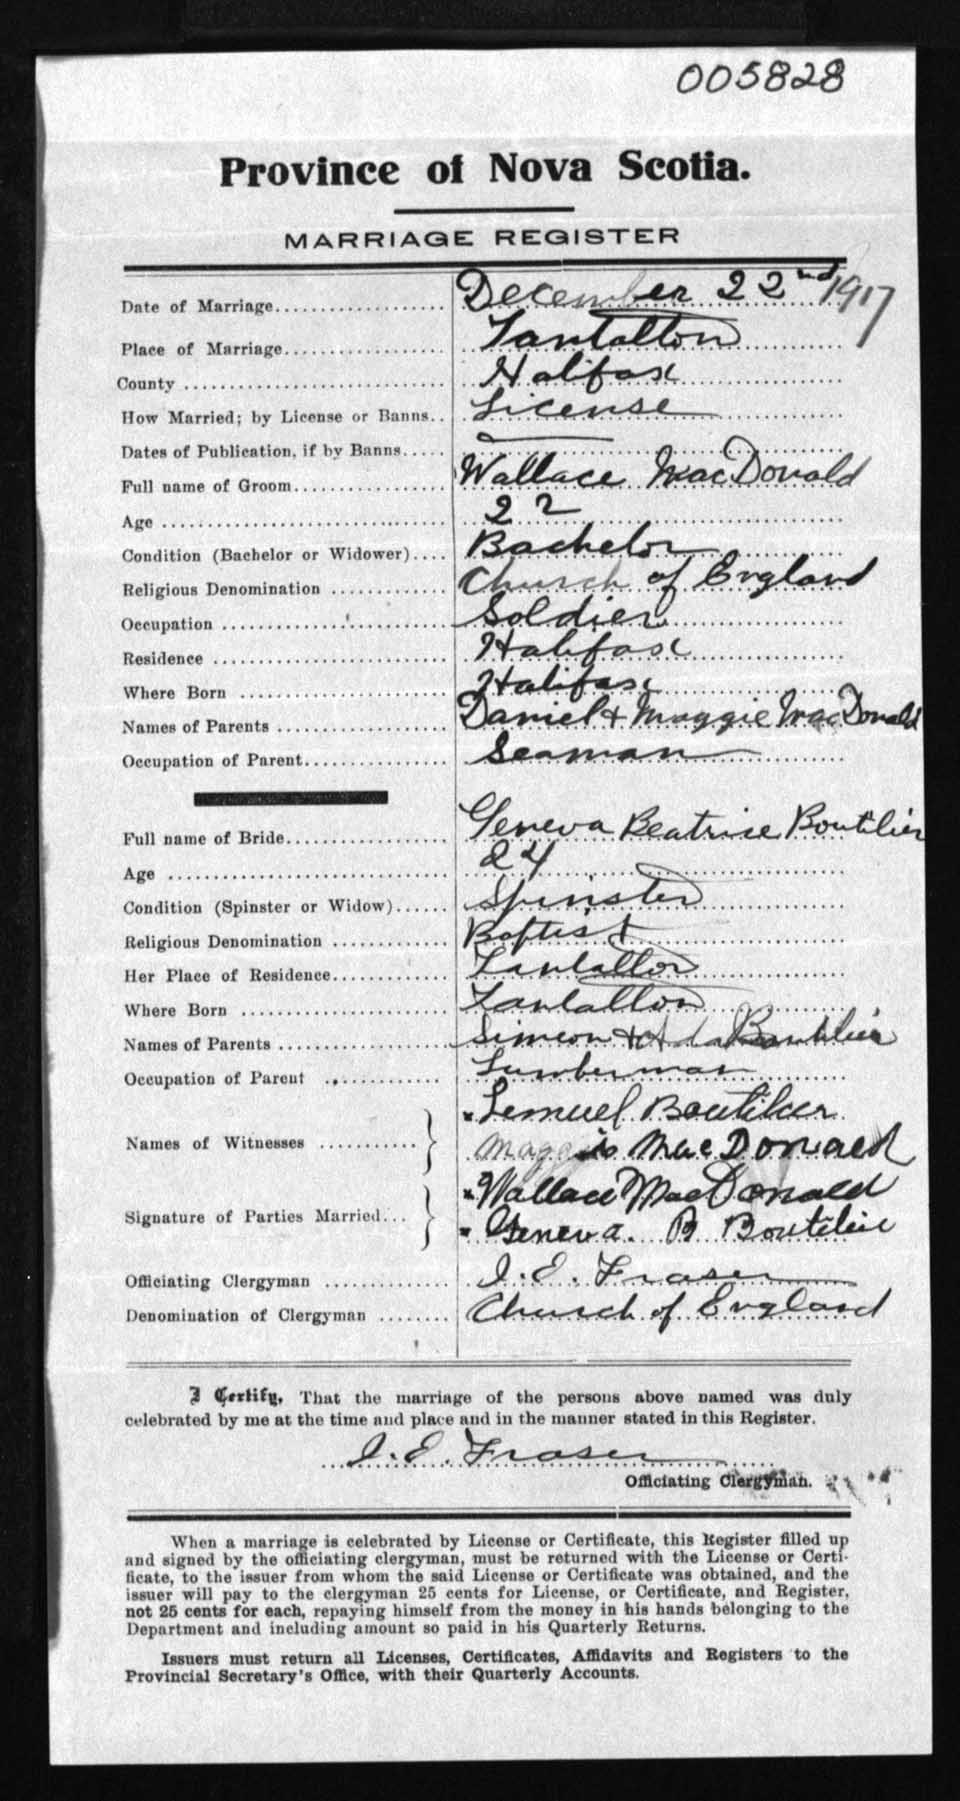 005828
Province of Nova Scotia.
MARRIAGE REGISTER
Date of Marriage.................... December 22nd 1917
Place of Marriage.................... Tantallon
County .................... Halifax
How Married; by License or Banns.. License
Dates of Publication, if by Banns.....
Full name of Groom.................... Wallace MacDonald
Age .................... 22
Condition (Bachelor or Widower).... Bachelor
Religious Denomination ............. Church of England
Occupation .................... Soldier
Residence .................... Halifax
Where Born .................... Halifax
Names of Parents .................... Daniel & Maggie MacDonald
Occupation of Parent.................... Seaman
Full name of Bride.................... Geneva Beatrice Boutilier
Age .................... 24
Condition (Spinster or Widow)...... Spinster
Religious Denomination ............. Baptist
Her Place of Residence............. Tantallon
Where Born .................... Tantallon
Names of Parents .................... Simeon & Ada Boutilier
Occupation of Parent .................... Lumberman
x Lemuel Boutilier
Names of Witnesses ........... } Maggie MacDonald
x Wallace MacDonald
Signature of Parties Married... } x Geneva. B Boutilier
Officiating Clergyman ............. I. E. Fraser
Denomination of Clergyman ........ Church of England
I Certify, That the marriage of the persons above named was duly
celebrated by me at the time and place and in the manner stated in this Register.
I. E. Fraser
Officiating Clergyman.
When a marriage is celebrated by License or Certificate, this Register filled up
and signed by the officiating clergyman, must be returned with the License or Certi-
ficate, to the issuer from whom the said License or Certificate was obtained, and the
issuer will pay to the clergyman 25 cents for License, or Certificate, and Register,
not 25 cents for each, repaying himself from the money in his hands belonging to the
Department and including amount so paid in his Quarterly Returns.
Issuers must return all Licenses, Certificates, Affidavits and Registers to the
Provincial Secretary's Office, with their Quarterly Accounts.